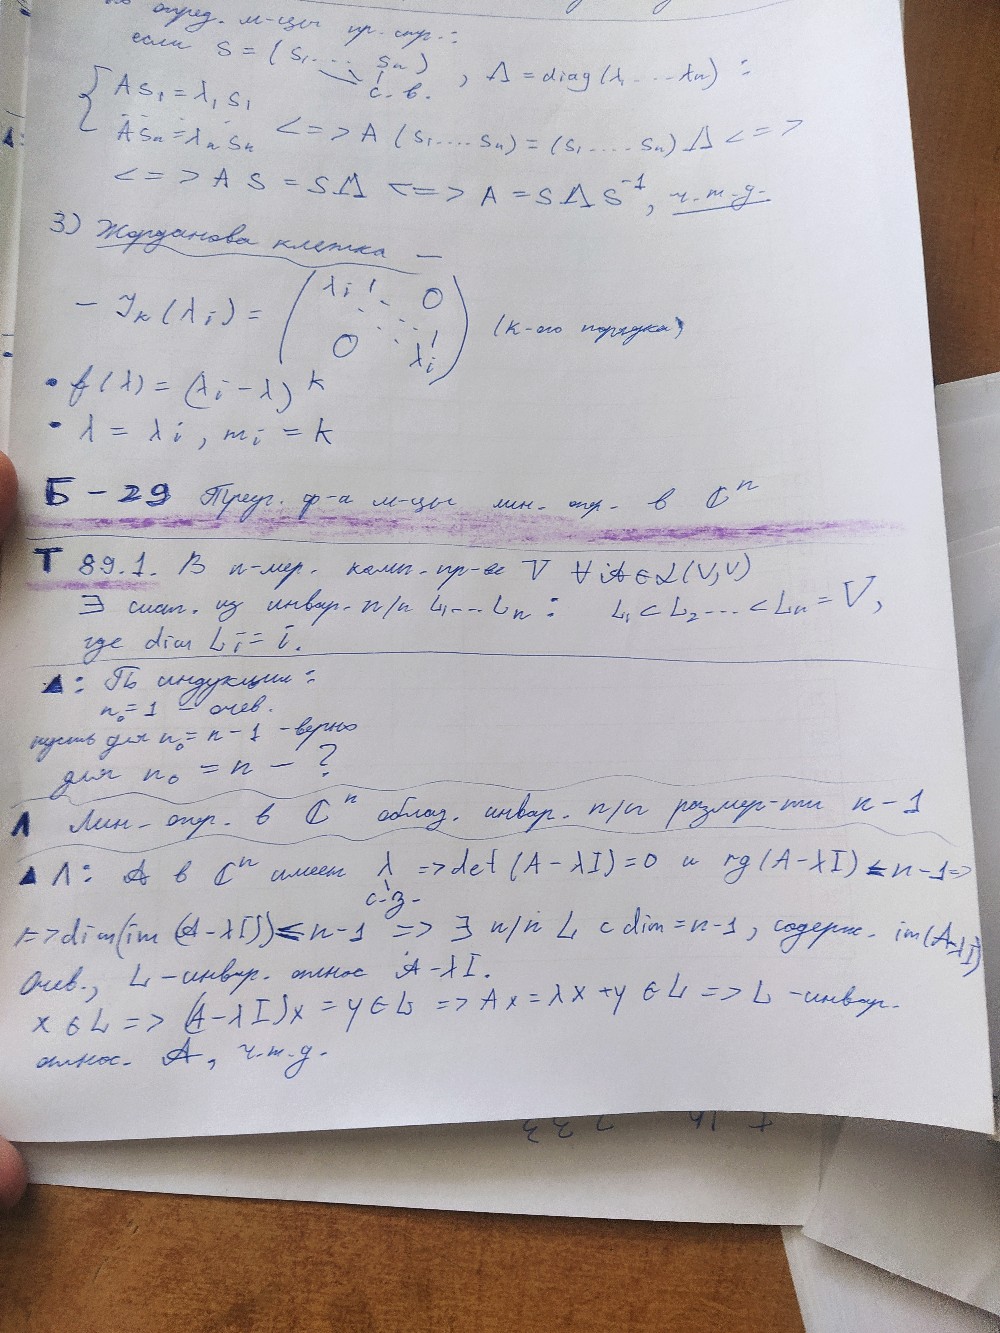 опред. м-цы пр. стр.:
если S = (s₁ .... sₙ) , Λ = diag(λ₁ ... λₙ) :
с. в.
{ A s₁ = λ₁ s₁
A sₙ = λₙ sₙ <=> A (s₁ .... sₙ) = (s₁ .... sₙ) Λ <=>
<=> A S = S Λ <=> A = S Λ S⁻¹, ч.т.д.
3) Жорданова клетка —
— Jₖ(λᵢ) = ( λᵢ 1 0 0 1 λᵢ ) (к-ого порядка)
• f(λ) = (λᵢ - λ)ᵏ
• λ = λᵢ , mᵢ = k
Б - 29 Треуг. ф-а м-цы лин. опр. в ℂⁿ
Т 89.1. В n-мер. комп. пр-ве V ∀ A ∈ ℒ(V,V)
∃ сист. из инвар. п/п L₁ ... Lₙ : L₁ < L₂ ... < Lₙ = V,
где dim Lᵢ = i.
▲: По индукции:
n₀ = 1 - очев.
пусть для n₀ = n - 1 - верно
для n₀ = n - ?
Л Лин. опр. в ℂⁿ облад. инвар. п/п размер-ти n - 1
▲ Л: A в ℂⁿ имеет λ => det (A - λI) = 0 и rg (A - λI) ≤ n - 1 =>
с.з.
=> dim(im (A - λI)) ≤ n - 1 => ∃ п/п L с dim = n - 1, содерж. im(A - λI)
Очев., L - инвар. относ A - λI.
x ∈ L => (A - λI)x = y ∈ L => Ax = λx + y ∈ L => L - инвар.
относ. A, ч.т.д.